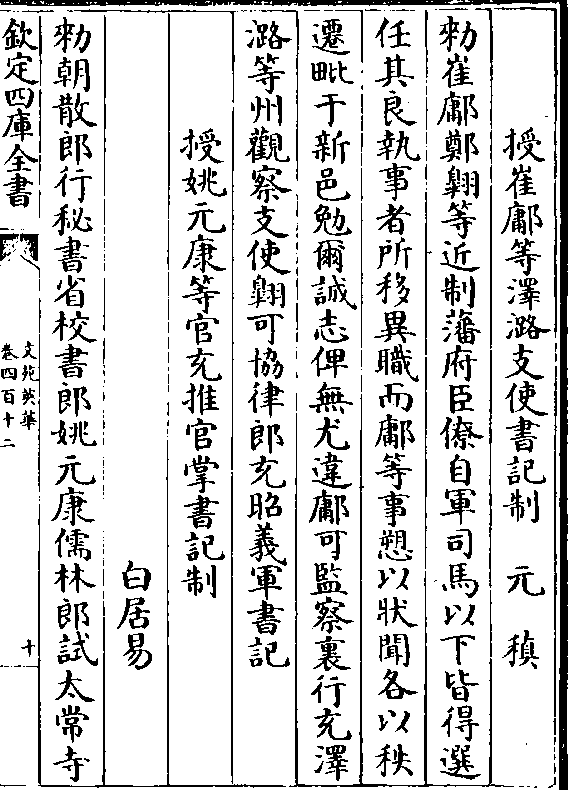 授崔鄘等澤潞支使書記制 元稹
勑崔鄘鄭翺等近制藩府臣僚自軍司馬以下皆得選
任其良執事者所移異職而鄘等事愬以狀聞各以秩
遷毗于新邑勉爾誠志俾無尤違鄘可監察裏行充澤
潞等州觀察支使翺可協律郎充昭義軍書記
授姚元康等官充推官掌書記制
白居易
勑朝散郎行秘書省校書郎姚元康儒林郎試太常寺
欽定四庫全書
文苑英華
卷四百十二
十